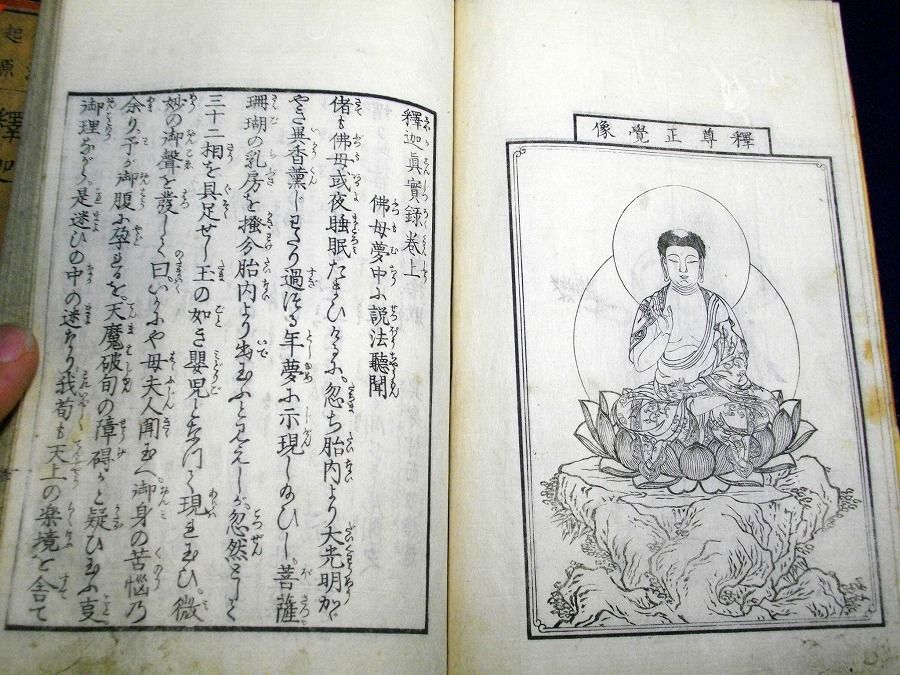 釋尊正覺像
釋迦眞實錄卷上
佛母夢中に説法聽聞
偖も佛母或夜睡眠たまひけるに。忽ち胎内より大光明かゞ
やき異香薫じわたり過つる年夢に示現し給ひし菩薩
珊瑚の乳房を掻分胎内より出玉ふと見えしが。忽然として
三十二相を具足せし玉の如き嬰児となつて現れ玉ひ。微
妙の御聲を發して曰。いかにや母夫人聞玉へ。御身の苦惱乃
余り予が御腹に孕るを。天魔破旬の障碍かと疑ひ玉ふ㕝
御理ながら。是迷ひの中の迷なり我苟も天上の楽境を舎て
起原
釋迦